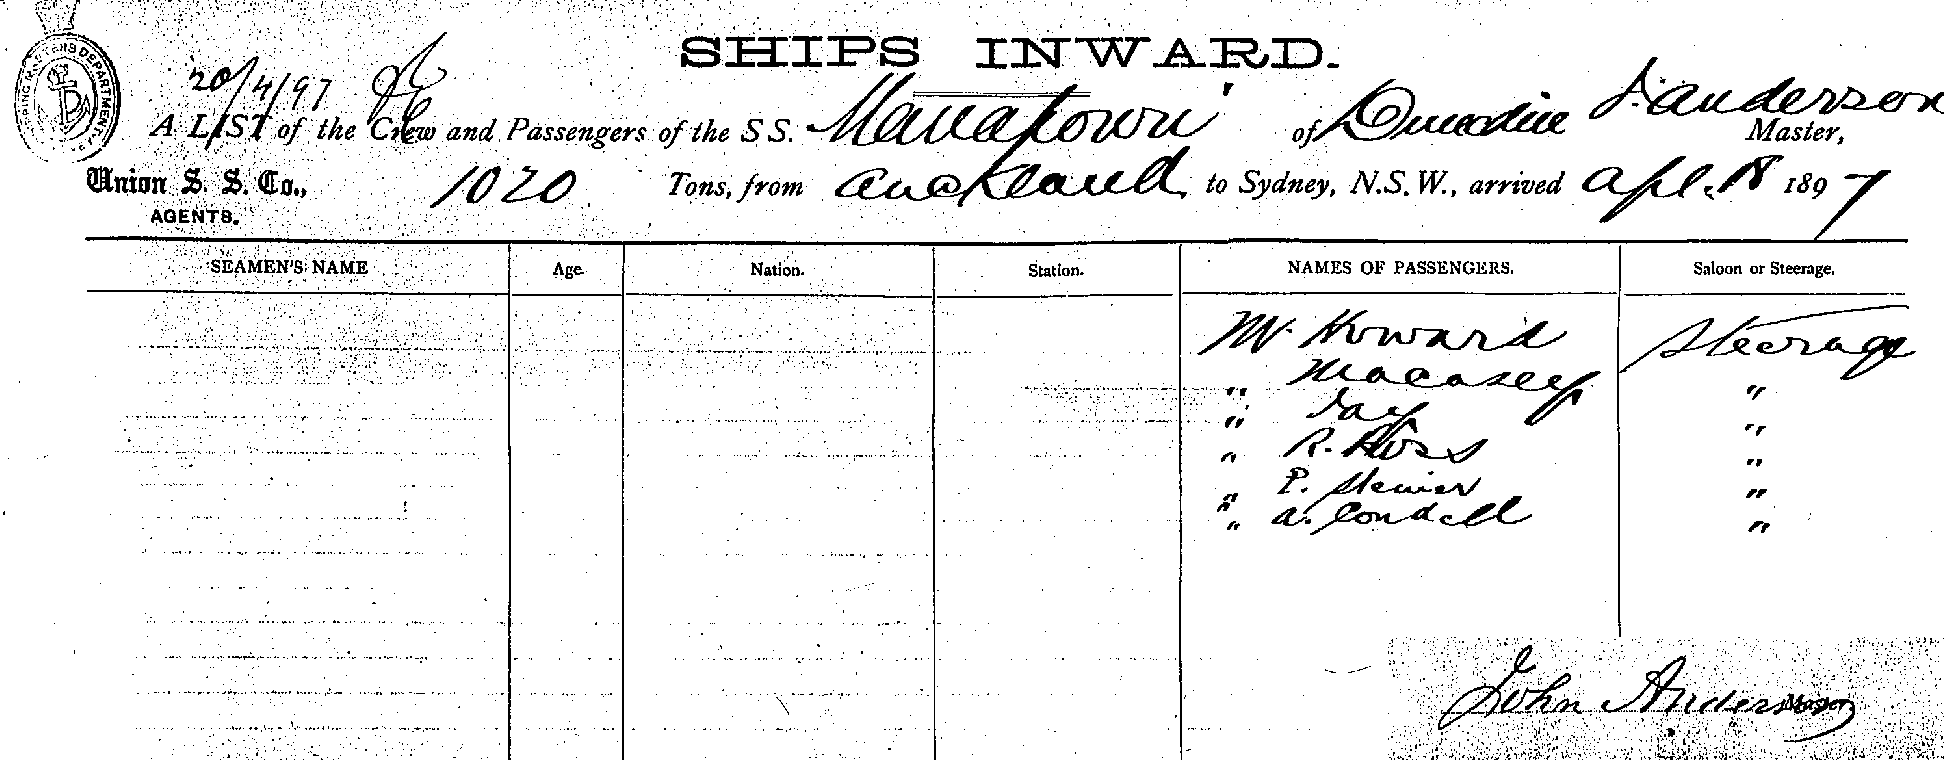 SHIPS INWARD.
20/4/97
A LIST of the Crew and Passengers of the S S. Manapouri of Dunedin J. Anderson Master,
Union S. S. Co., 1020 Tons, from Auckland to Sydney, N.S.W., arrived Apl. 18 1897
AGENTS.
SEAMEN'S NAME Age. Nation. Station. NAMES OF PASSENGERS. Saloon or Steerage.
Mr Howard Steerage
" Macasey "
" Jay "
" R. Ross "
" P. Steiner "
" A. Condell "
John Anderson
Master